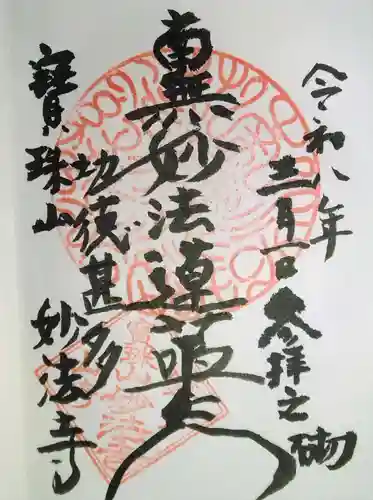 令和八年
三月一日参拝之砌
南無妙法蓮華経
功徳甚多
寶珠山
妙法寺